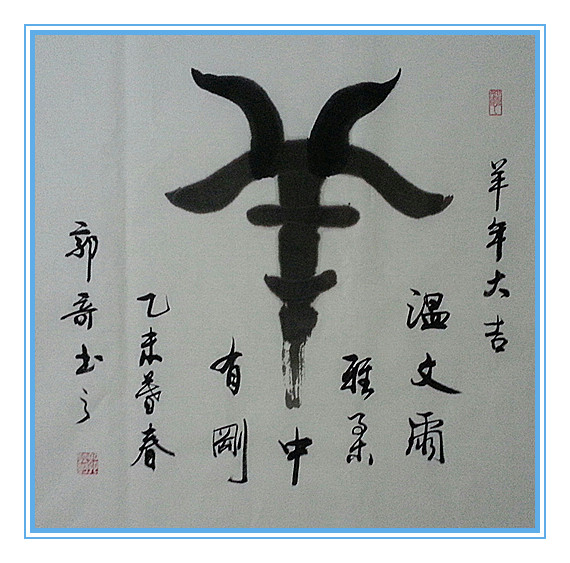 羊
羊年大吉
温文爾
雅柔
中
有剛
乙未暮春
郭奇书之